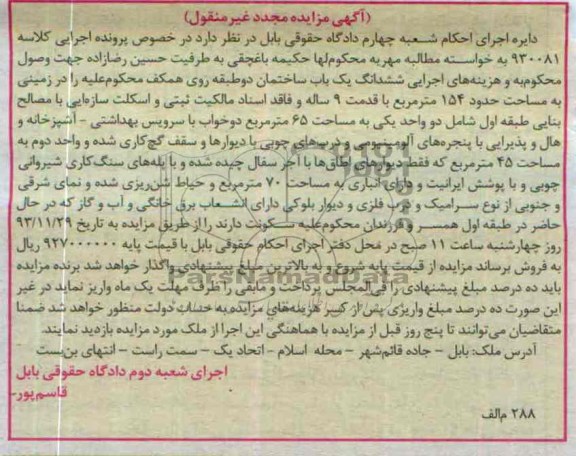 (آگهی مزایده مجدد غیر منقول)
دایره اجرای احکام شعبه چهارم دادگاه حقوقی بابل در نظر دارد در خصوص پرونده اجرایی کلاسه
۹۳۰۰۸۱ به خواسته مطالبه مهریه محکوم‌لها حکیمه باغچقی به طرفیت حسین رضازاده جهت وصول
محکوم‌به و هزینه‌های اجرایی ششدانگ یک باب ساختمان دوطبقه روی همکف محکوم‌علیه را در زمینی
به مساحت حدود ۱۵۴ مترمربع با قدمت ۹ ساله و فاقد اسناد مالکیت ثبتی و اسکلت سازه‌ایی با مصالح
بنایی طبقه اول شامل دو واحد یکی به مساحت ۶۵ مترمربع دوخواب با سرویس بهداشتی - آشپزخانه و
هال و پذیرایی با پنجره‌های آلومینیومی و درب‌های چوبی با دیوارها و سقف گچ‌کاری شده و واحد دوم به
مساحت ۴۵ مترمربع که فقط دیوارهای اطاق‌ها با آجر سفال چیده شده و با پله‌های سنگ‌کاری شیروانی
چوبی و با پوشش ایرانیت و دارای انباری به مساحت ۷۰ مترمربع و حیاط شن‌ریزی شده و نمای شرقی
و جنوبی از نوع سرامیک و درب فلزی و دیوار بلوکی دارای انشعاب برق خانگی و آب و گاز که در حال
حاضر در طبقه اول همسر و فرزندان محکوم‌علیه سکونت دارند را از طریق مزایده به تاریخ ۹۳/۱۱/۲۹
روز چهارشنبه ساعت ۱۱ صبح در محل دفتر اجرای احکام حقوقی بابل با قیمت پایه ۹۲۷۰۰۰۰۰۰ ریال
به فروش برساند مزایده از قیمت پایه شروع و به بالاترین مبلغ پیشنهادی واگذار خواهد شد برنده مزایده
باید ده درصد مبلغ پیشنهادی را فی‌المجلس پرداخت و مابقی را ظرف مهلت یک ماه واریز نماید در غیر
این صورت ده درصد مبلغ واریزی پس از کسر هزینه‌های مزایده به حساب دولت منظور خواهد شد ضمنا
متقاضیان می‌توانند تا پنج روز قبل از مزایده با هماهنگی این اجرا از ملک مورد مزایده بازدید نمایند.
آدرس ملک: بابل - جاده قائم‌شهر - محله اسلام - اتحاد یک - سمت راست - انتهای بن‌بست
اجرای شعبه دوم دادگاه حقوقی بابل
قاسم‌پور-
۲۸۸ م‌الف